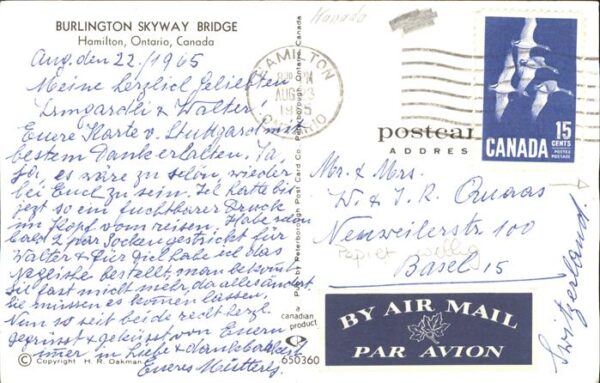 BURLINGTON SKYWAY BRIDGE
Hamilton, Ontario, Canada
Kanada
Aug. den 22./1965
Meine herzlich geliebten
Irmgardli & Walter!
Euere Karte v. Stuttgard mit
bestem Dank erhalten. Ja
ja, es wäre zu schön, wieder
bei Euch zu sein. Ich hatte bis
jezt so ein fuchtbarer Druck
im Kopf vom reisen. Habe schon
bald 2 par Socken gestrickt für
Walter & für Dich habe ich das
Negliche bestellt, man bekommt
sie fast nicht mehr, da alles ändert.
Sie müssen es kommen lassen.
Nun so seit beide recht herzl.
gegrüsst & geküsst von Euerm
imer in Liebe & dankbarkeit
Eueres Mütterli
© Copyright H. R. Oakman
Pub. by Peterborough Post Card Co. Peterborough, Ontario, Canada
a
canadian
product
650360
HAMILTON
PM
AUG 23
1965
ONTARIO
postcar
ADDRES
15
CENTS
POSTES
POSTAGE
CANADA
Mr. & Mrs.
W. & I. R. Quaas
Neuweilerstr 100
Papier
Basel 15
Switzerland.
BY AIR MAIL
PAR AVION